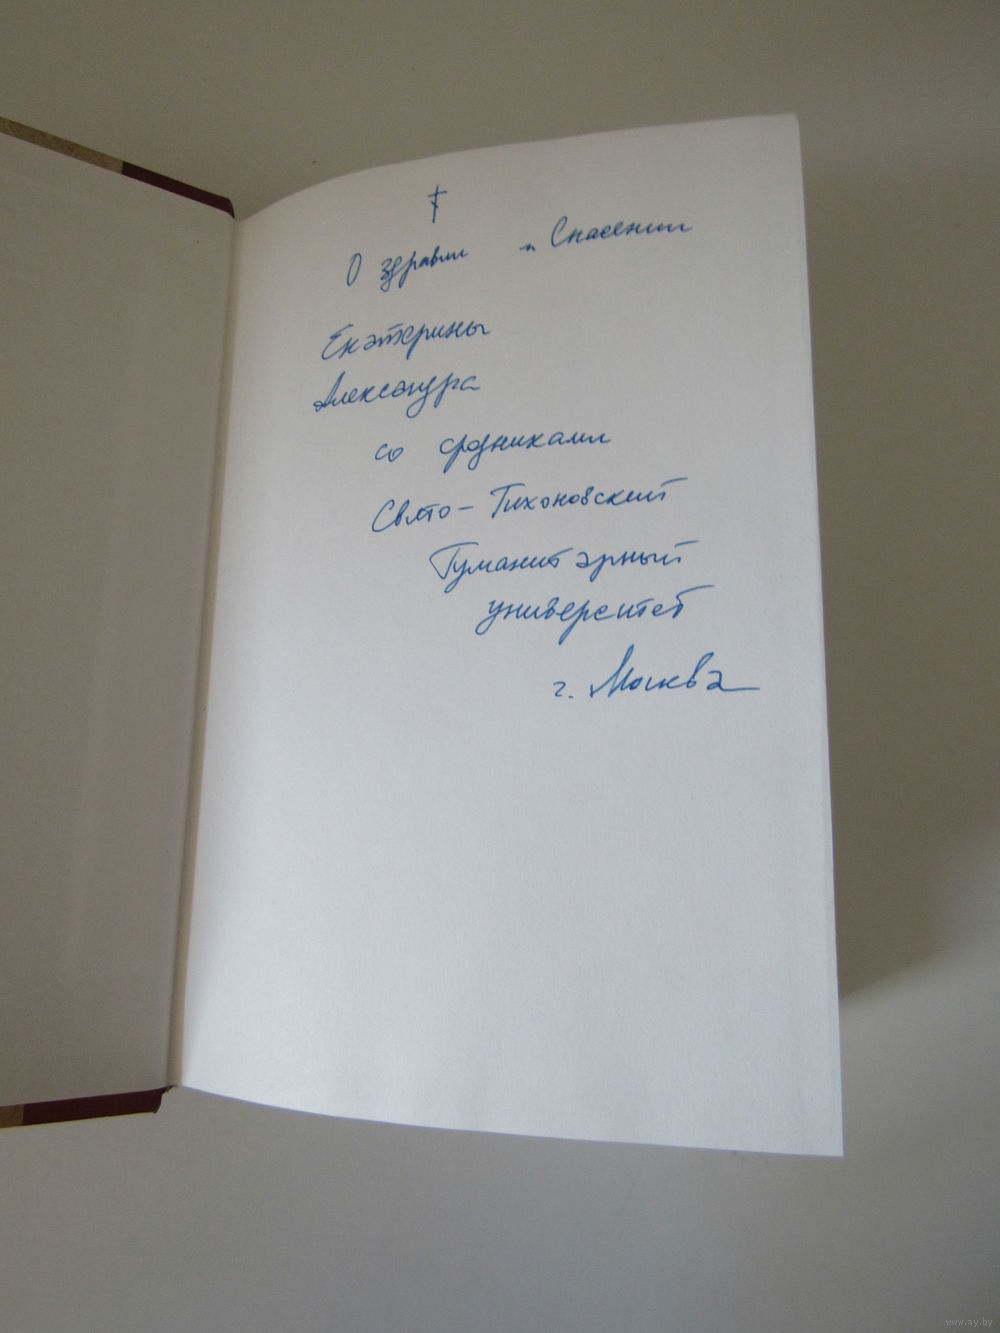 О здравии и Спасении
Екатерины
Александра
со сродниками
Свято-Тихоновский
Гуманитарный
университет
г. Москва
www.ay.by